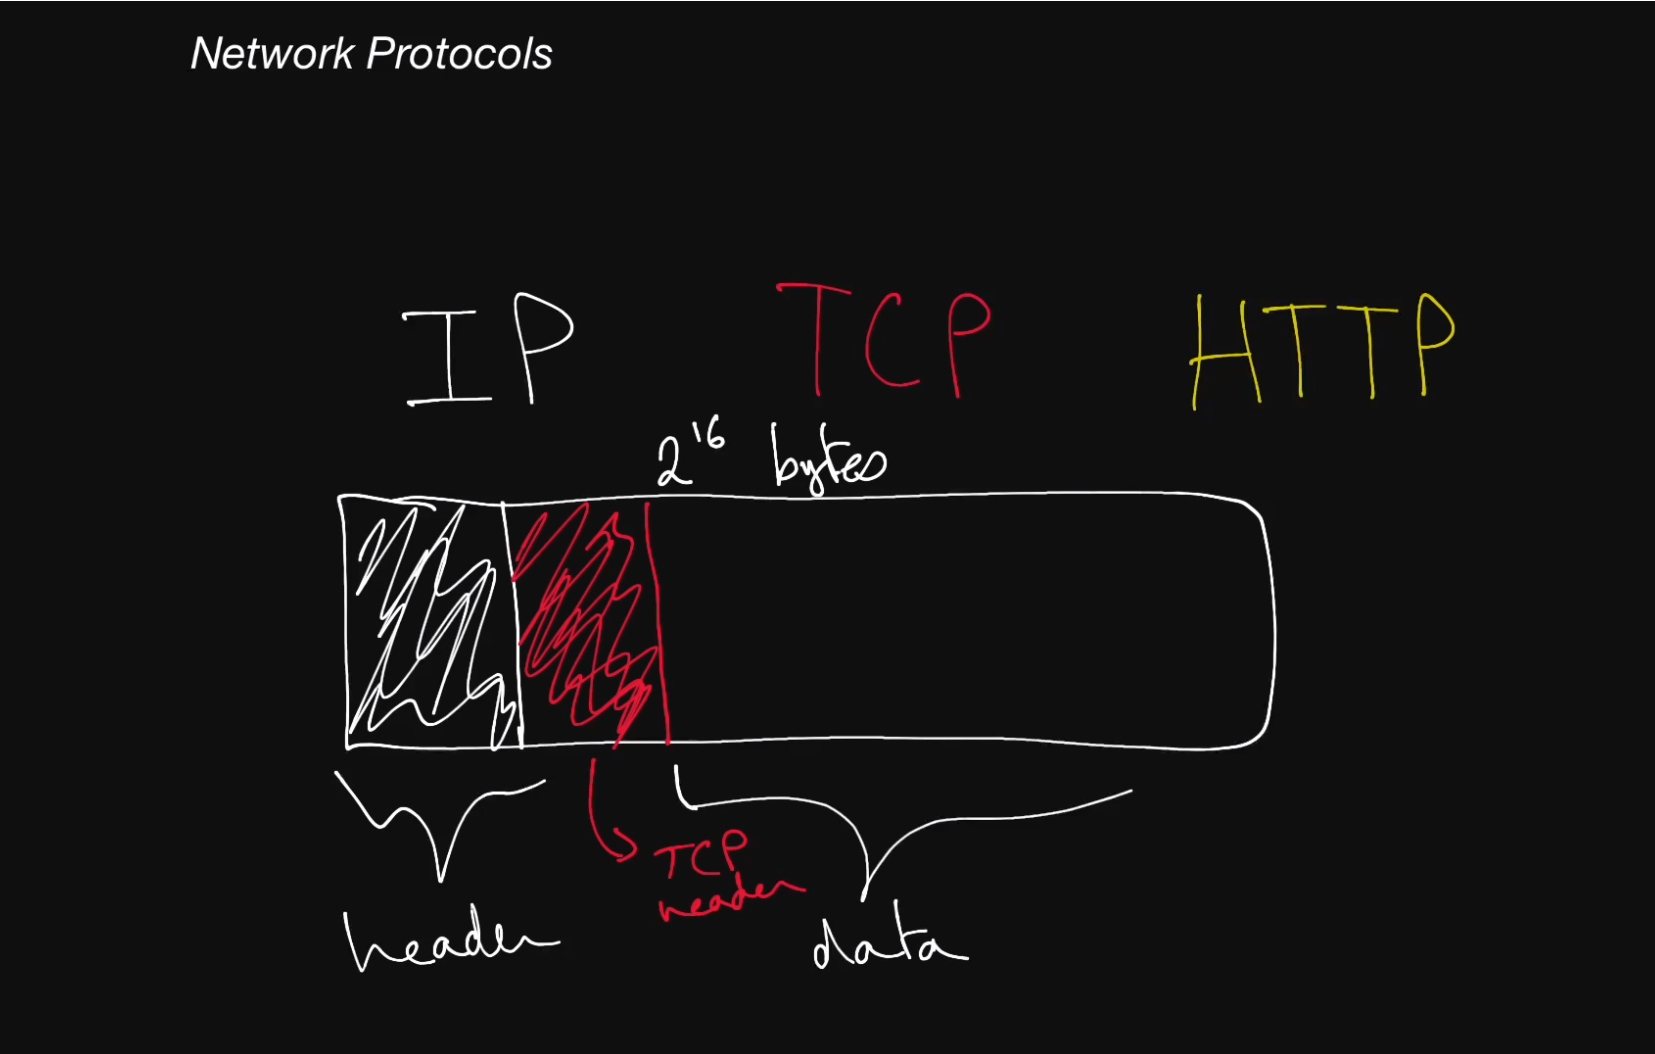 Network Protocols
IP TCP HTTP
2^16 bytes
TCP
header
header data